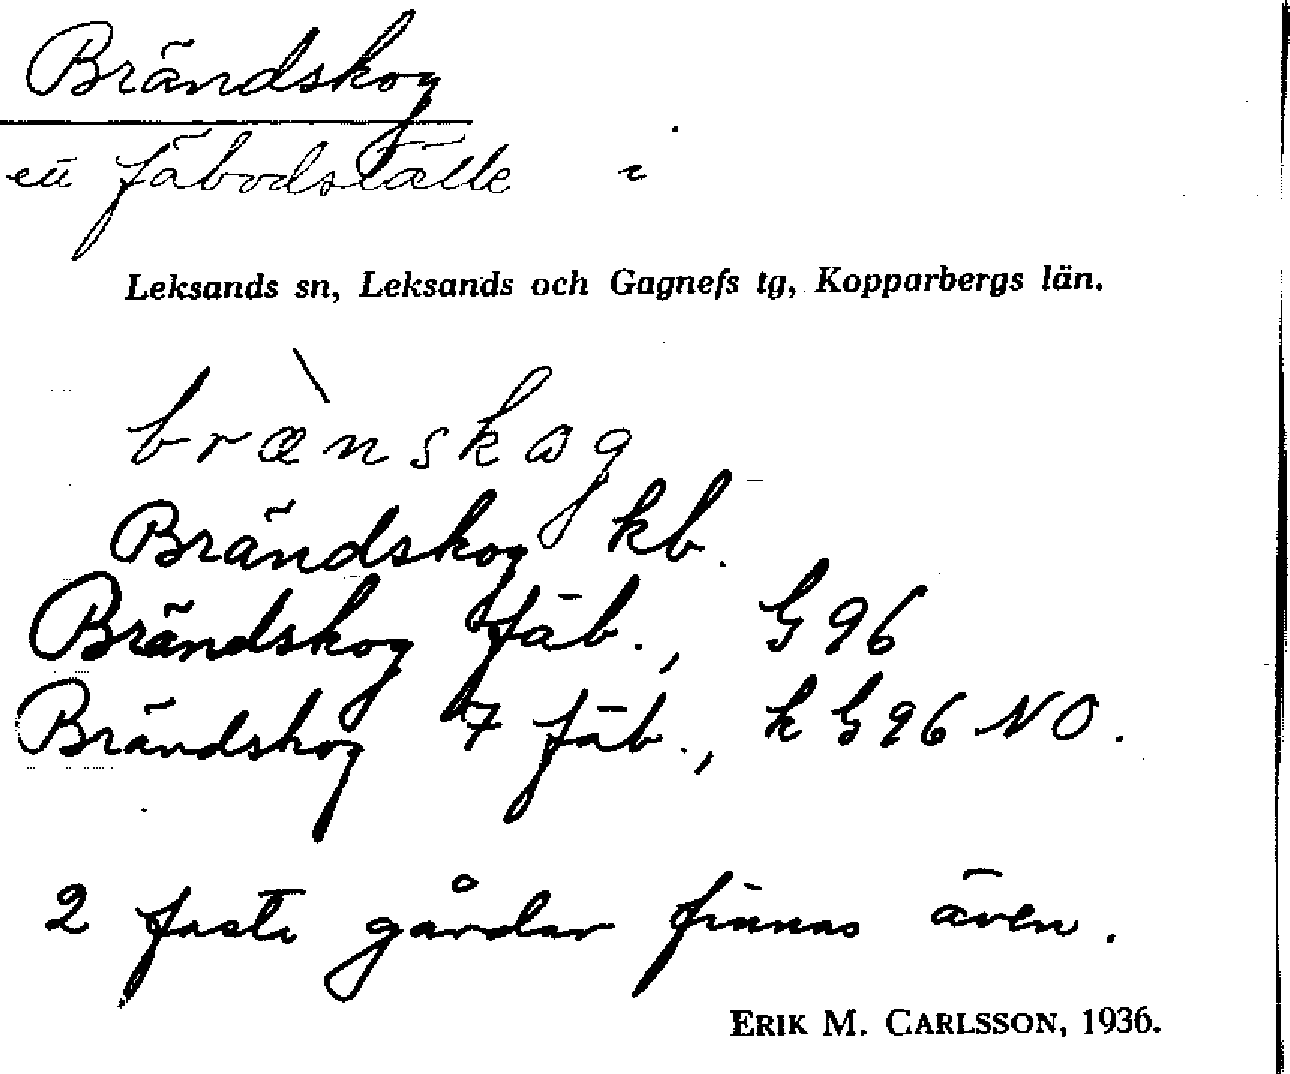 Brändskog
ett fäbodställe i
Leksands sn, Leksands och Gagnefs tg, Kopparbergs län.
bræ̀nskɷg
Brändskog kb.
Brändskog fäb., G 96
Brändskog 7 fäb., k G 96 NO.
2 fasta gårdar finnas även.
ERIK M. CARLSSON, 1936.